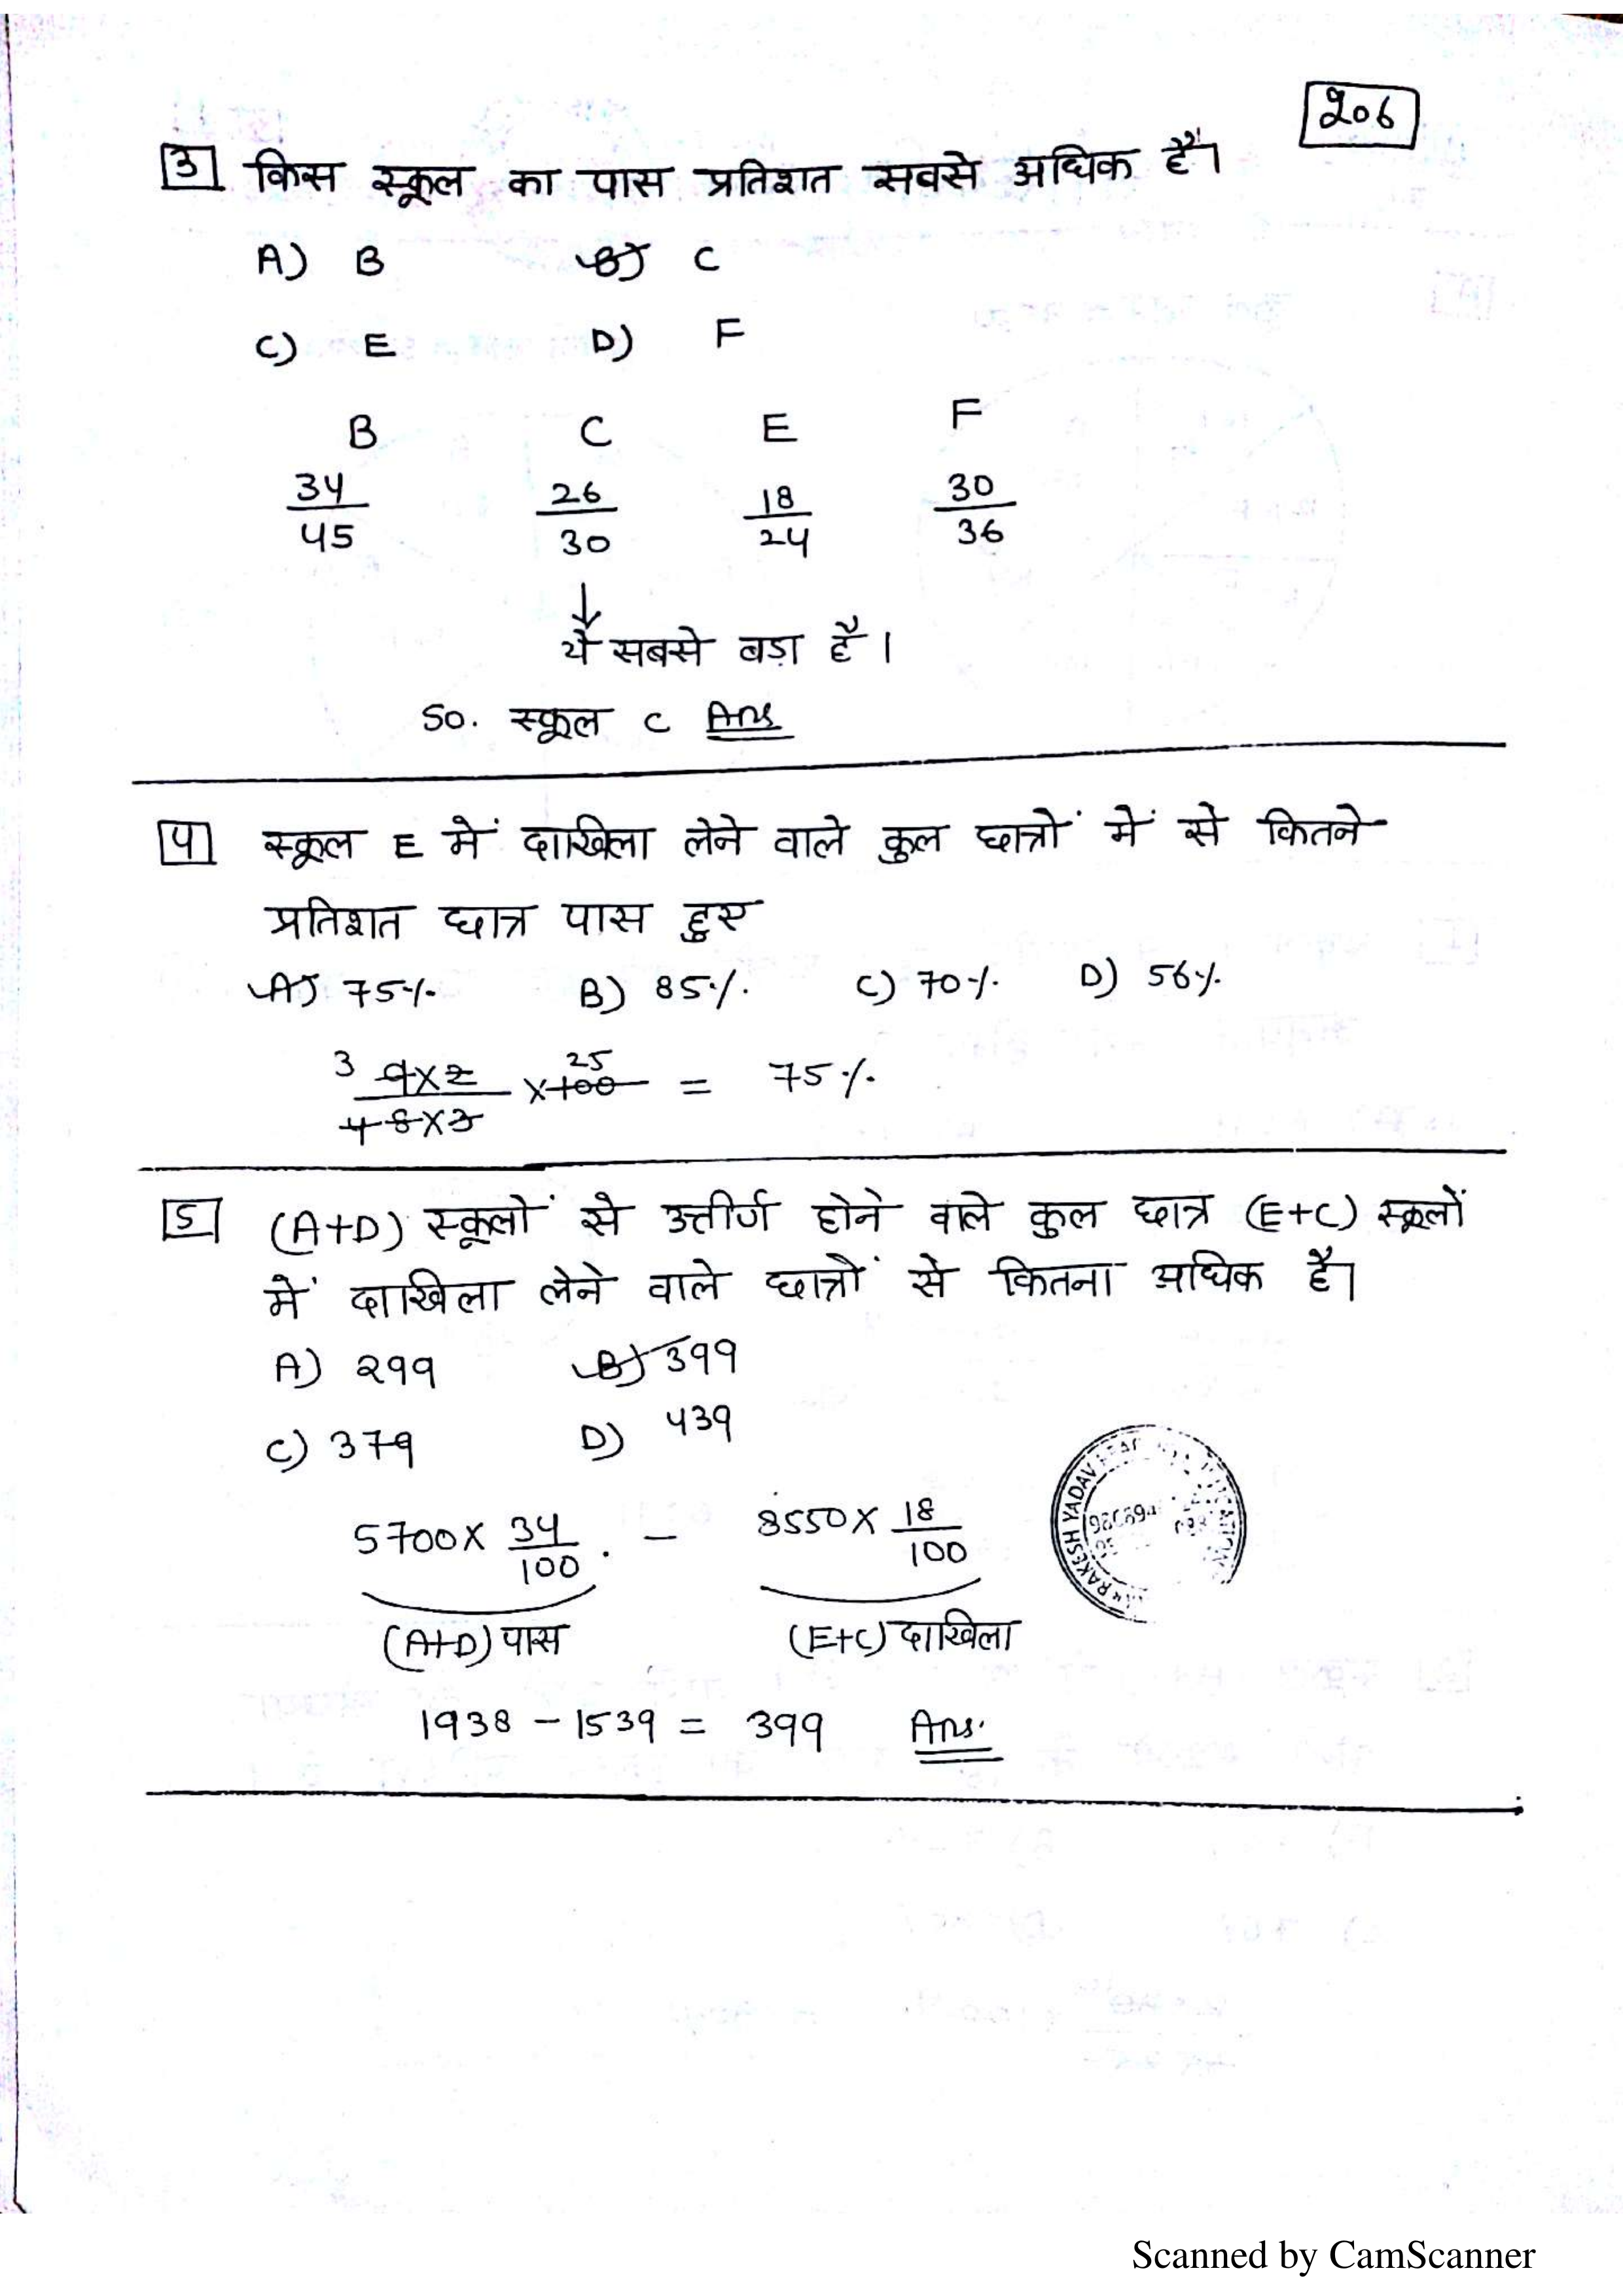 206
3 किस स्कूल का पास प्रतिशत सबसे अधिक है।
A) B B) C
C) E D) F
B C E F
34/45 26/30 18/24 30/36
↓
ये सबसे बड़ा है।
So. स्कूल C Ans
4 स्कूल E में दाखिला लेने वाले कुल छात्रों में से कितने
प्रतिशत छात्र पास हुए
A) 75% B) 85% C) 70% D) 56%
3 25
9×2/8×3 ×100 = 75%
4
5 (A+D) स्कूलों से उत्तीर्ण होने वाले कुल छात्र (E+C) स्कूलों
में दाखिला लेने वाले छात्रों से कितना अधिक है।
A) 299 B) 399
C) 379 D) 439
5700× 34/100 . − 8550× 18/100
(A+D) पास (E+C) दाखिला
1938 − 1539 = 399 Ans.
RAKESH YADAV
Scanned by CamScanner